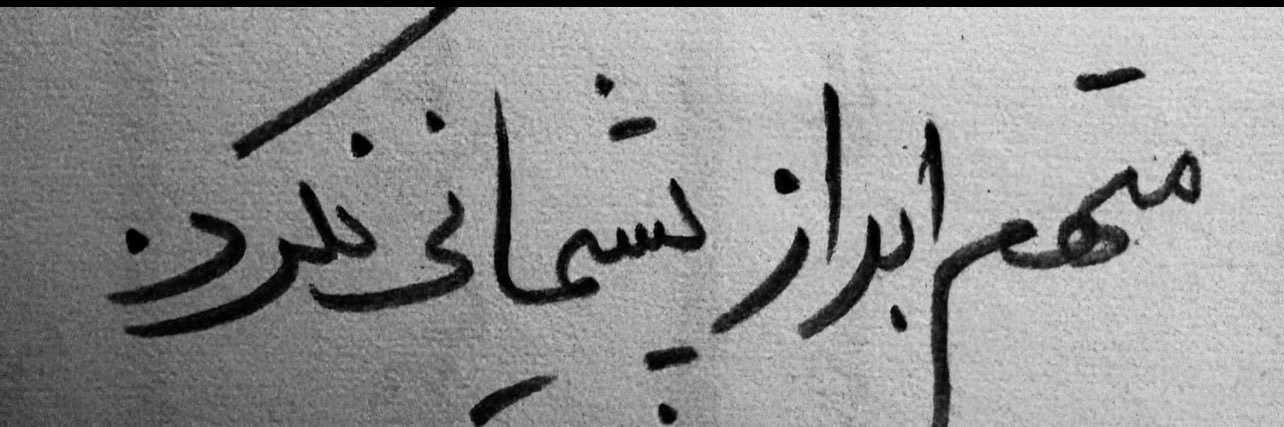 متهم ابراز پشیمانی نکرد.